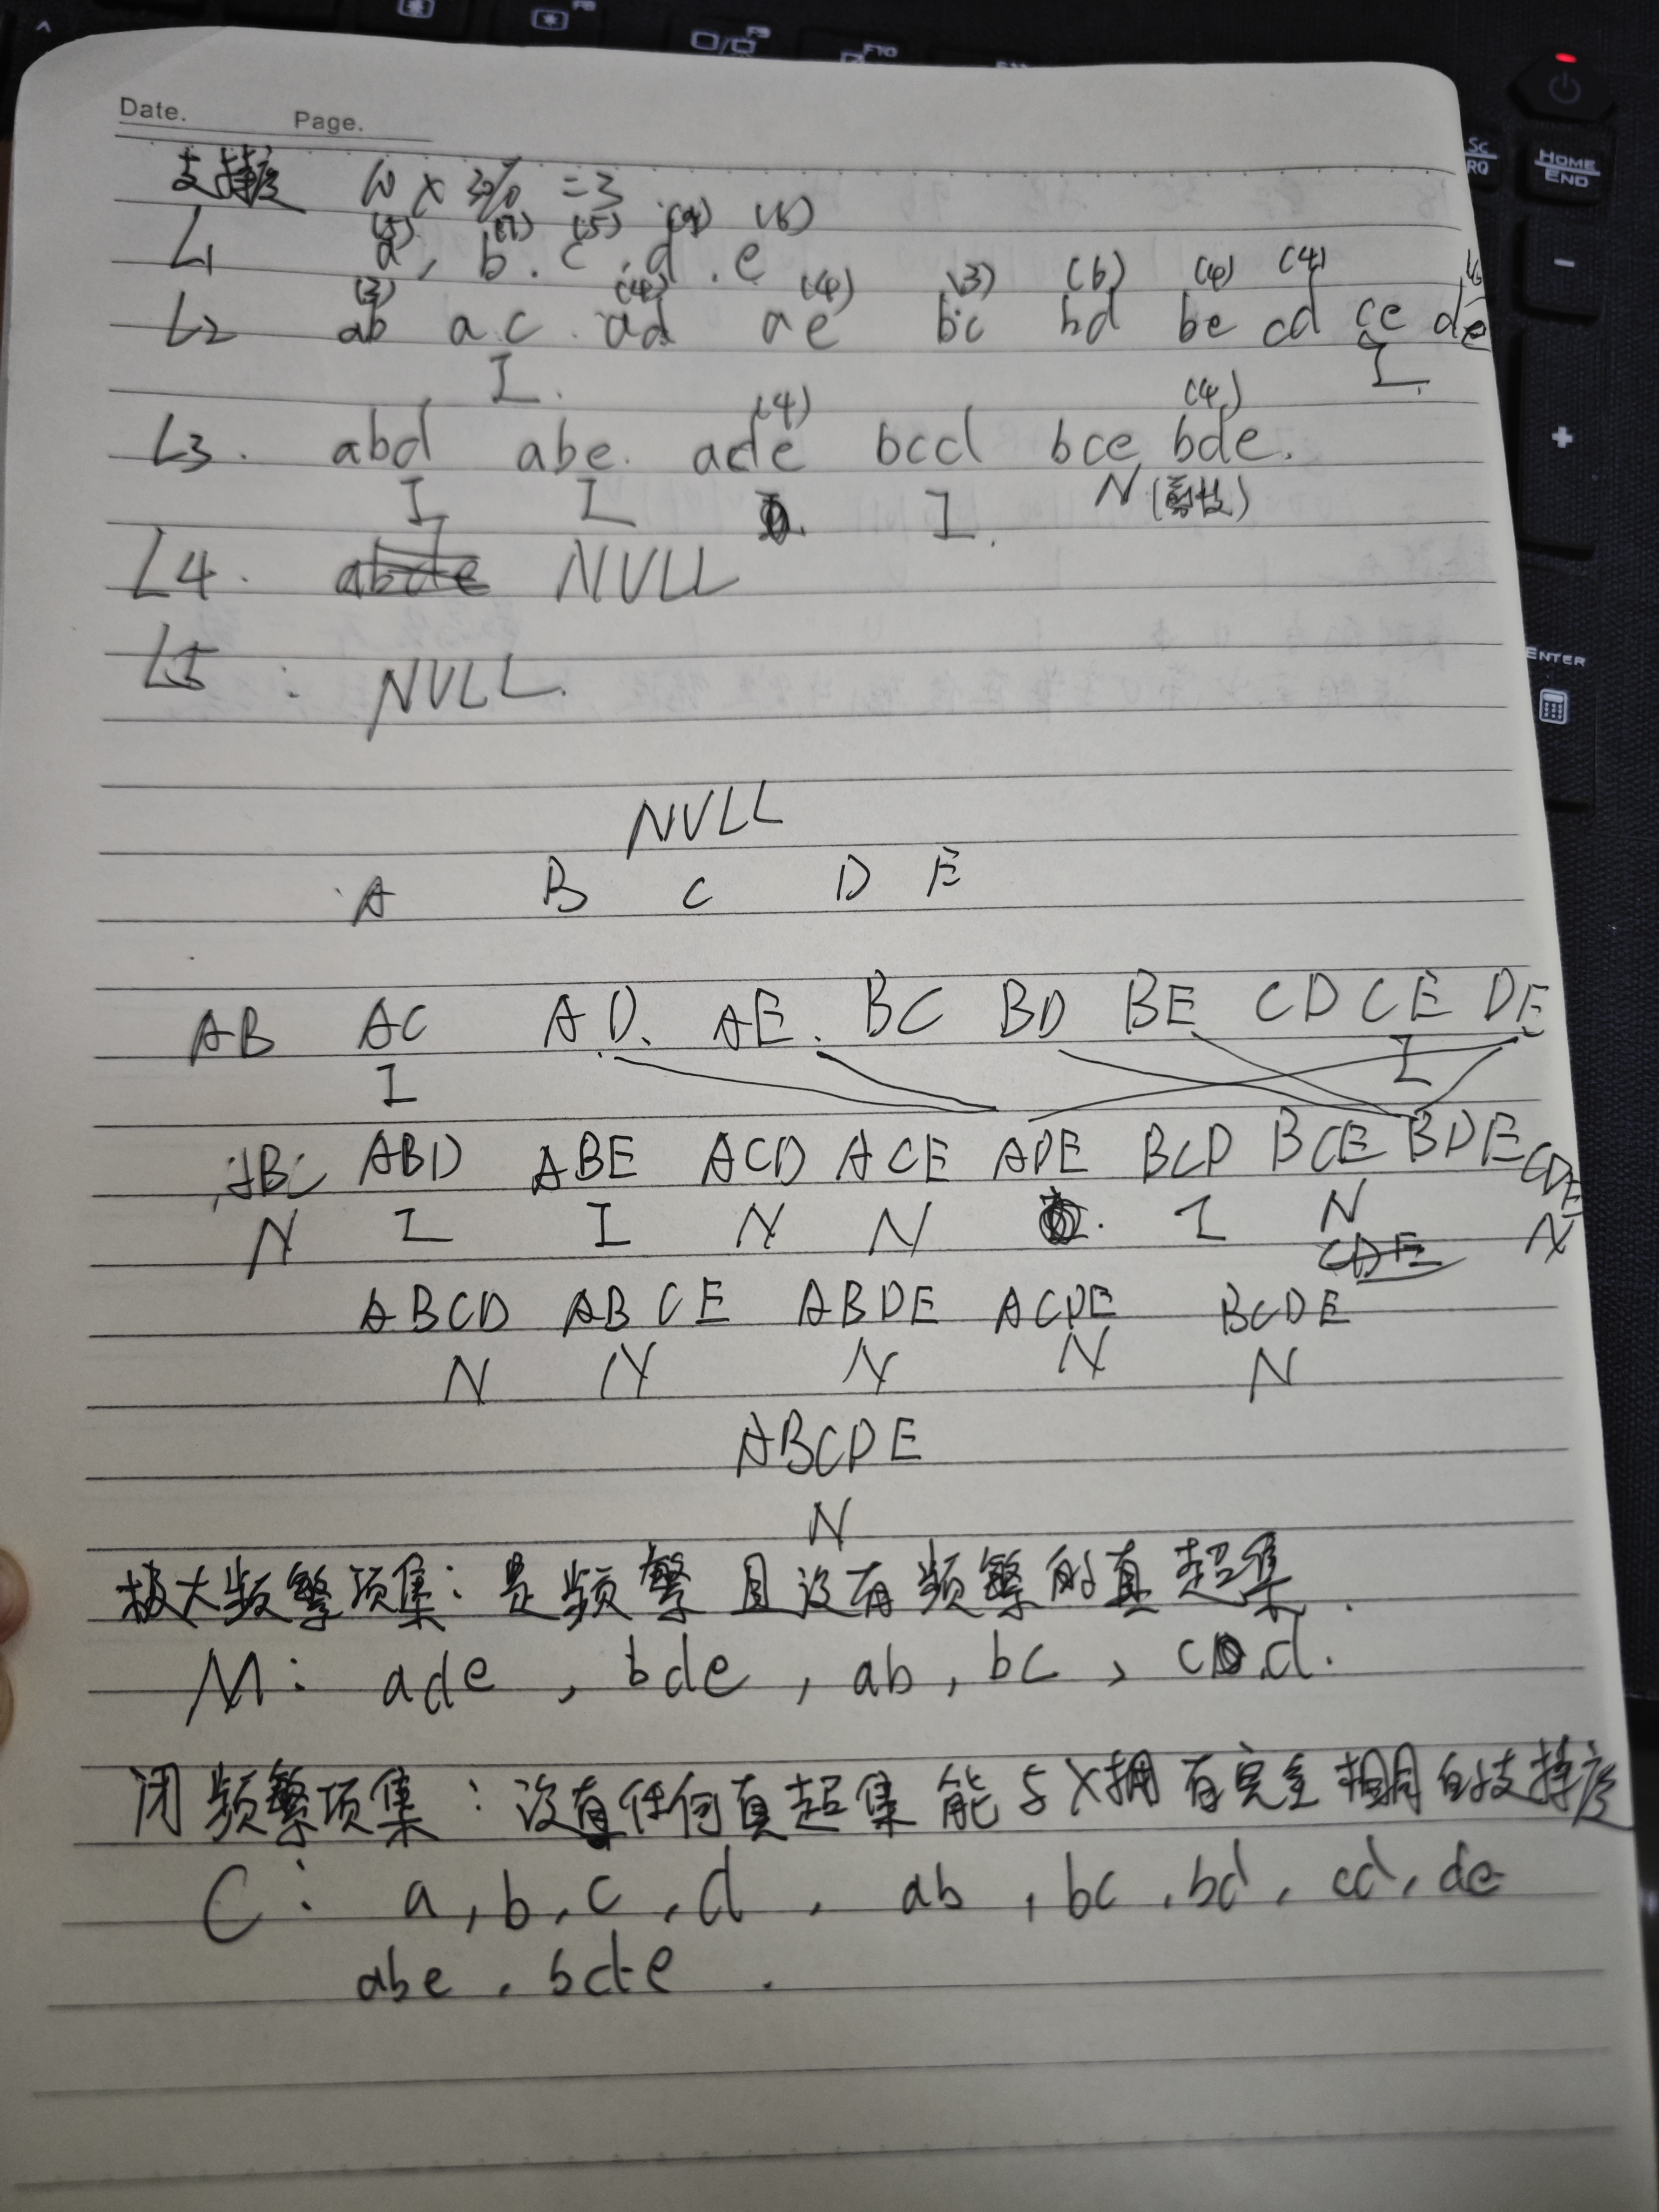 Date. Page.
支持度 10 × 30% = 3
(5) (7) (5) (9) (6)
L1 a, b. c. d. e
(3) (4) (4) (3) (6) (4) (4) (6)
L2 ab ac ad ae bc bd be cd ce de
I. I.
(4) (4)
L3. abd abe. ade bcd bce bde.
I I I. N(剪枝)
L4. abde NULL
L5: NULL.
NULL
A B C D E
AB AC AD. AE. BC BD BE CD CE DE
I I
ABC ABD ABE ACD ACE ADE BCD BCE BDE CDE
N I I N N I N N
CDE
ABCD ABCE ABDE ACDE BCDE
N N N N N
ABCDE
N
极大频繁项集: 是频繁且没有频繁的真超集.
M: ade, bde, ab, bc, cd.
闭频繁项集: 没有任何真超集能与X拥有完全相同的支持度
C: a, b, c, d, ab, bc, bd, cd, de
abe, bde.
Sc
RQ
HOME
END
ENTER
F9
F10